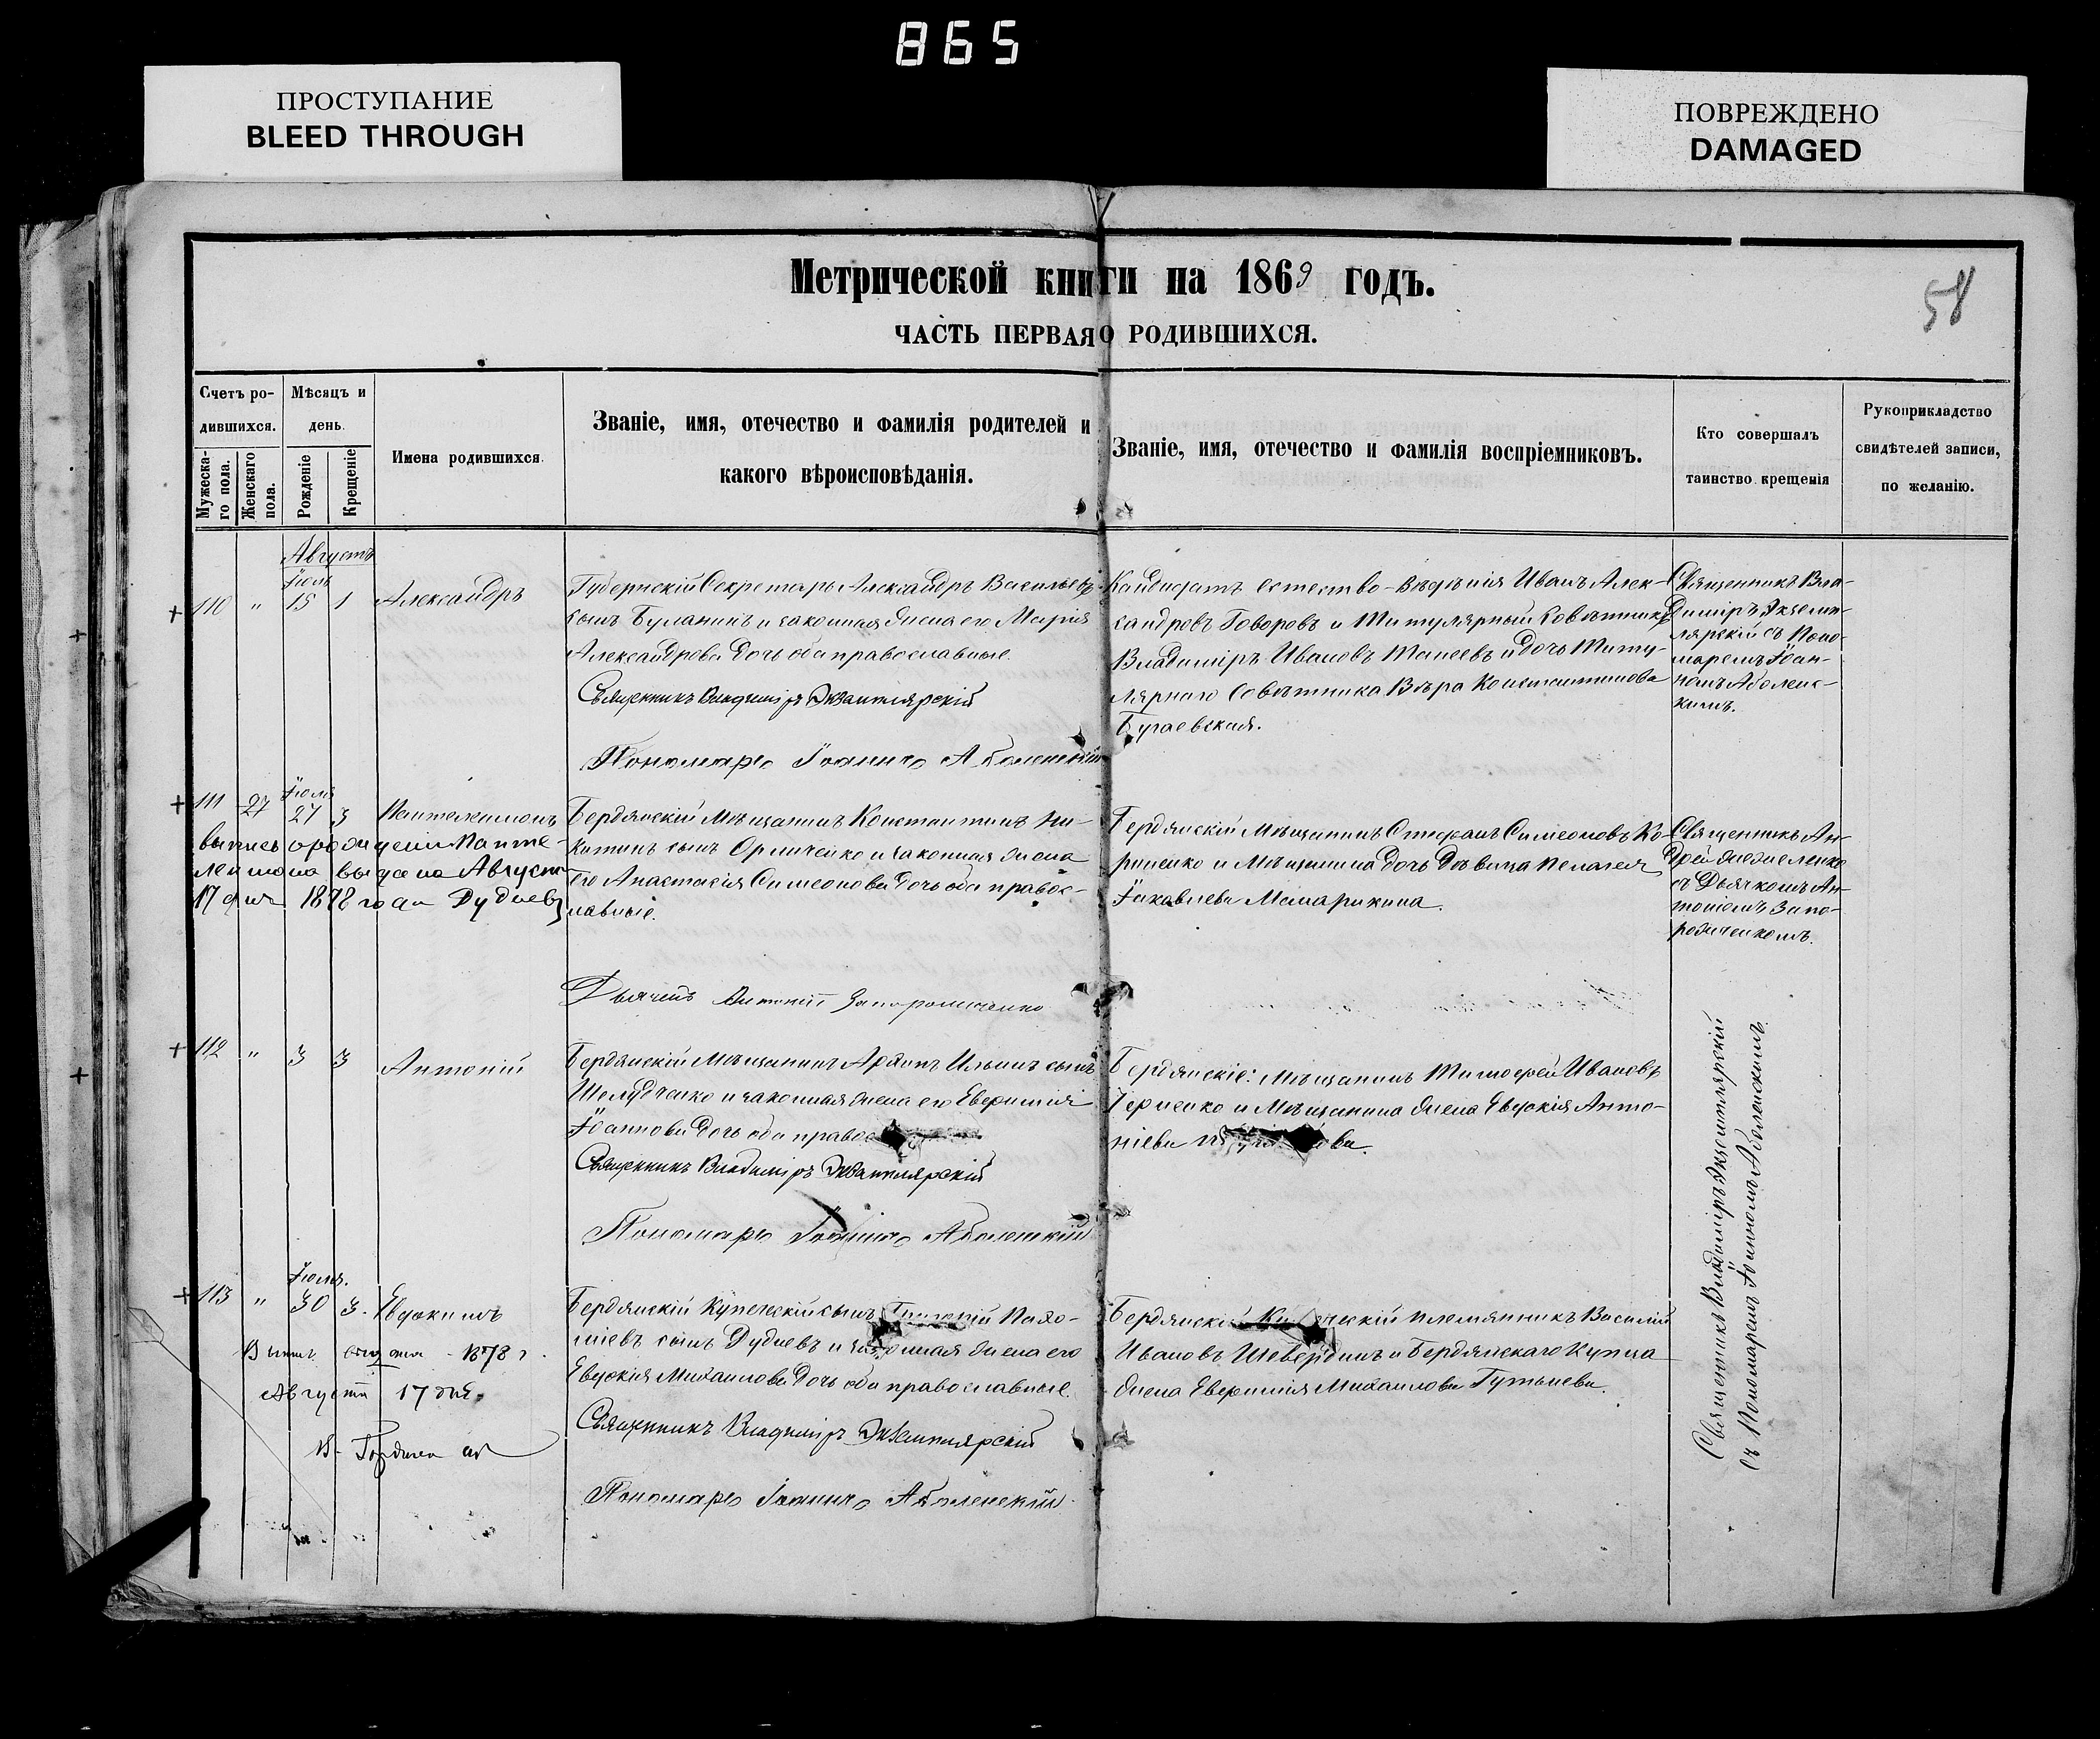 865
ПРОСТУПАНИЕ
BLEED THROUGH
ПОВРЕЖДЕНО
DAMAGED
Метрической книги на 1869 годъ.
58
ЧАСТЬ ПЕРВАЯ О РОДИВШИХСЯ.
Счетъ ро-
дившихся.
Мужеска-
го пола.
Женскаго
пола.
Мѣсяцъ и
день.
Рожденіе
Крещеніе
Имена родившихся.
Званіе, имя, отечество и фамилія родителей и
какого вѣроисповѣданія.
Званіе, имя, отечество и фамилія воспріемниковъ.
Кто совершалъ
таинство крещенія
Рукоприкладство
свидѣтелей записи,
по желанію.
Августъ
Іюль
110 " 15 1 Александръ
Губернскій Секретарь Александръ Васильевъ
сынъ Буланинъ и законная жена его Марія
Александрова дочь оба православные.
Священникъ Владиміръ Экземплярскій
Пономарь Іоаннъ Аболенскій
Кандидатъ естество-вѣдѣнія Иванъ Алек-
сандровъ Говоровъ и Титулярный Совѣтникъ
Владиміръ Ивановъ Танеевъ и дочь Титу-
лярнаго Совѣтника Вѣра Константинова
Бугаевская.
Священникъ Вла-
диміръ Экземп-
лярскій съ Поно-
маремъ Іоан-
номъ Аболенс-
кимъ.
Іюль
111 27 27 3 Пантелеимонъ
выпись о рожденіи Панте-
леимона выдана Август
17 дня 1878 года Дудневъ
Бердянскій Мѣщанинъ Константинъ Ни-
китинъ сынъ Орличенко и законная жена
его Анастасія Симеонова дочь оба правос-
лавные.
Дьячекъ Антоній Запорожченко
Бердянскій Мѣщанинъ Стефанъ Симеоновъ Ко-
рниенко и Мѣщанина дочь Дѣвица Пелагея
Іаковлева Мамарикина.
Священникъ Ан-
дрей Шелженко
съ Дьячкомъ Ан-
тоніемъ Запо-
рожченкомъ.
112 " 3 3 Антоній
Бердянскій Мѣщанинъ Архипъ Ильинъ сынъ
Шелудченко и законная жена его Евфимія
Іоаннова дочь оба правос
Священникъ Владиміръ Экземплярскій
Пономарь Іоаннъ Аболенскій
Бердянскіе: Мѣщанинъ Тимофей Ивановъ
Герненко и Мѣщанина жена Евдокія Анто-
ніева
Іюля.
113 " 30 3. Евдокимъ
выдана 1878 г.
Августа 17 дня.
Бердянскій Купеческій сынъ Григорій Пахо-
міевъ сынъ Дудневъ и законная жена его
Евдокія Михаилова дочь оба православные.
Священникъ Владиміръ Экземплярскій
Пономарь Іоаннъ Аболенскій
Бердянскій Купеческій племянникъ Василій
Ивановъ Шевердинъ и Бердянскаго Купца
жена Евфимія Михаилова Гутьнева.
Священникъ Владиміръ Экземплярскій
съ Пономаремъ Іоанномъ Аболенскимъ.